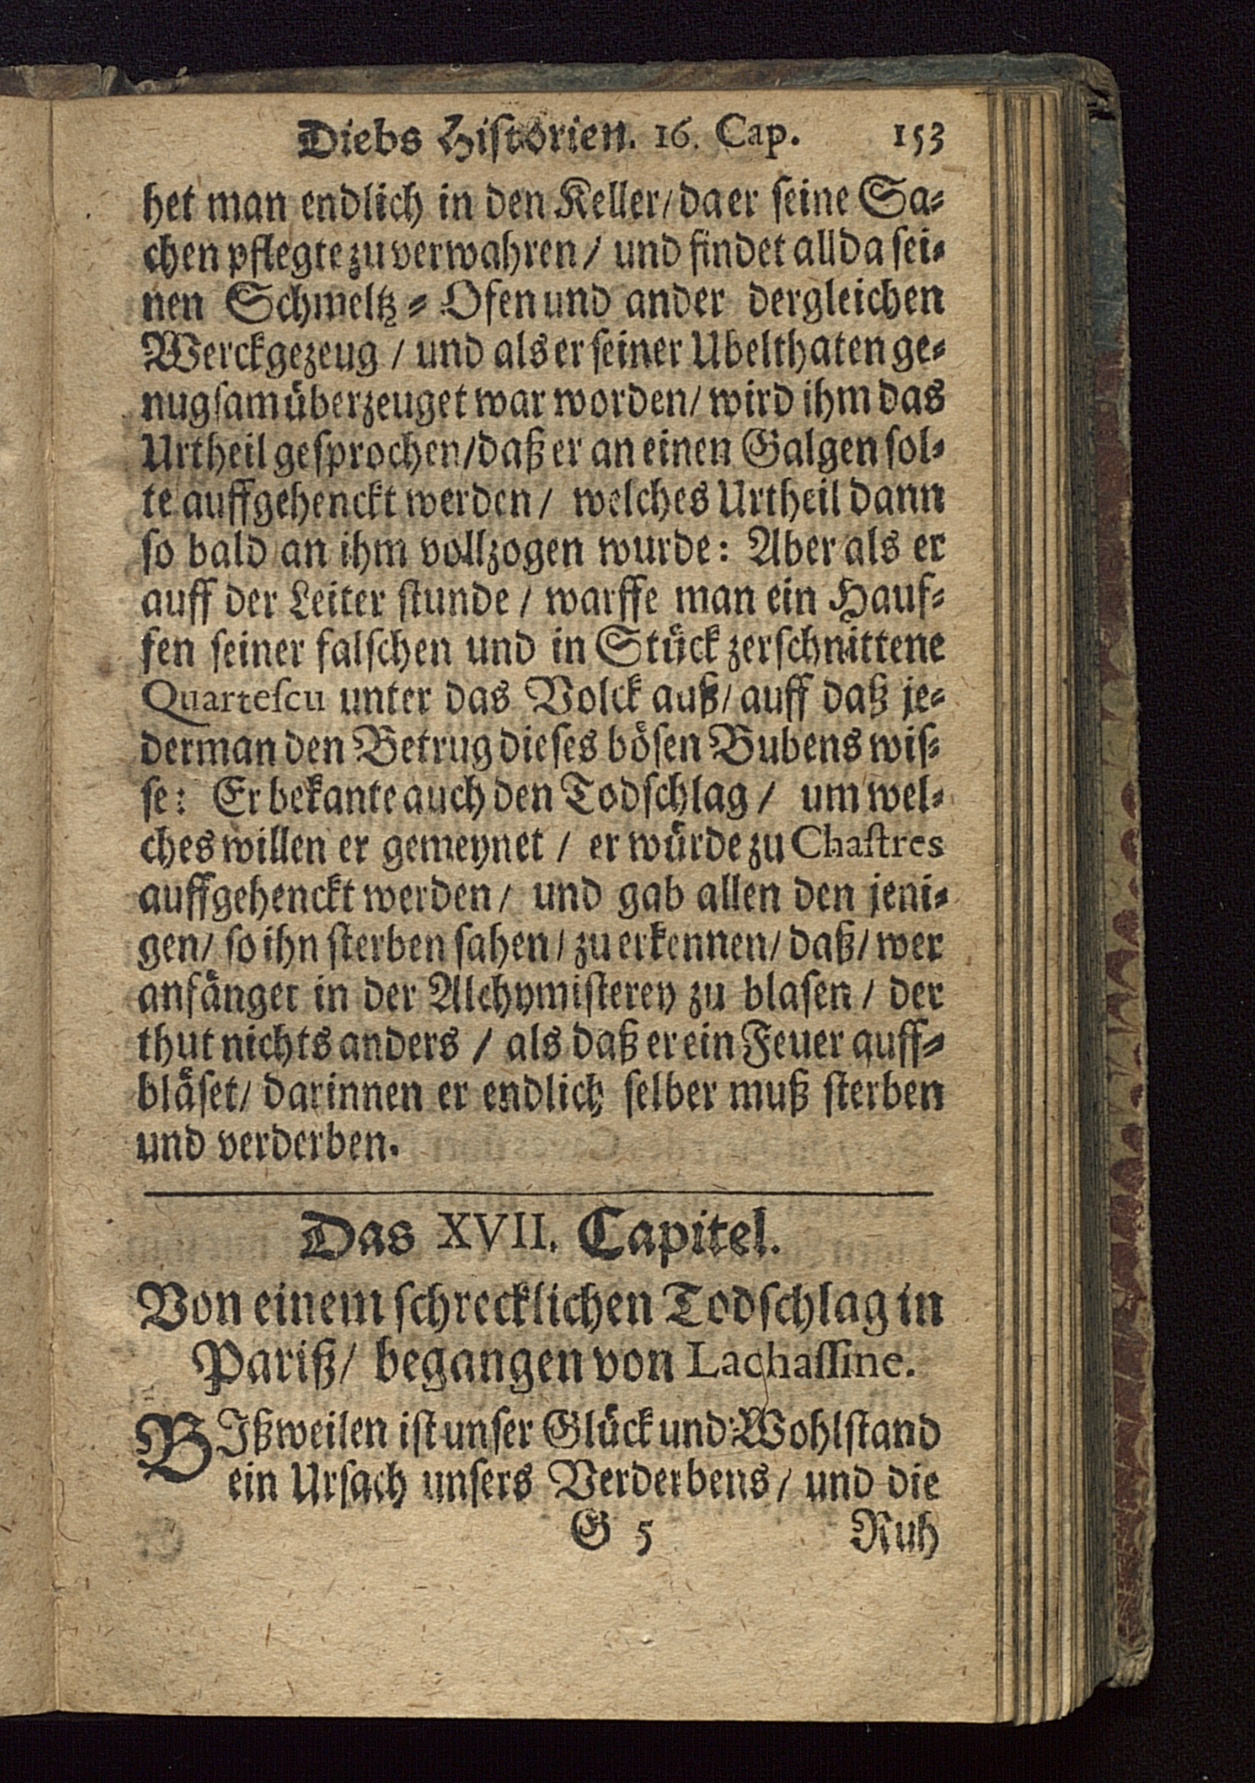 Diebs Historien. 16. Cap. 153
het man endlich in den Keller/ da er seine Sa-
chen pflegte zu verwahren/ und findet allda sei-
nen Schmeltz-Ofen und ander dergleichen
Werckgezeug/ und als er seiner Ubelthaten ge-
nugsam überzeuget war worden/ wird ihm das
Urtheil gesprochen/ daß er an einen Galgen sol-
te auffgehenckt werden/ welches Urtheil dann
so bald an ihm vollzogen wurde: Aber als er
auff der Leiter stunde/ warffe man ein Hauf-
fen seiner falschen und in Stück zerschnittene
Quartescu unter das Volck auß/ auff daß je-
derman den Betrug dieses bösen Bubens wis-
se: Er bekante auch den Todschlag/ um wel-
ches willen er gemeynet/ er würde zu Chastres
auffgehenckt werden/ und gab allen den jeni-
gen/ so ihn sterben sahen/ zu erkennen/ daß/ wer
anfänget in der Alchymisterey zu blasen/ der
thut nichts anders/ als daß er ein Feuer auff-
bläset/ darinnen er endlich selber muß sterben
und verderben.
Das XVII. Capitel.
Von einem schrecklichen Todschlag in
Pariß/ begangen von Lachassine.
BIßweilen ist unser Glück und Wohlstand
ein Ursach unsers Verderbens/ und die
G 5 Ruh